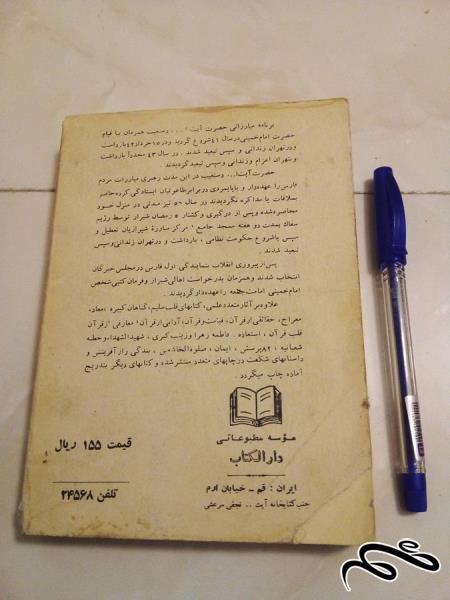 برنامه مبارزاتی حضرت آیت ا... دستغیب همزمان با قیام
حضرت امام خمینی در سال ۴۱ شروع گردید و در ۱۵ خرداد ۴۲ بازداشت
و در تهران زندانی و سپس تبعید شدند . در سال ۴۳ مجدداً بازداشت
و بتهران اعزام و زندانی و سپس تبعید گردیدند .
حضرت آیت ا... دستغیب در این مدت رهبری مبارزات مردم
فارس را عهده‌دار و با پایمردی در برابر طاغوتیان ایستادگی کرده حاضر
بملاقات یا مذاکره نگردیدند در سال ۵۰ نیز مدتی در منزل خود
محاصره شده و پس از درگیری و کشتار ۵ رمضان شیراز توسط رژیم
سفاک بمدت دو هفته مسجد جامع ، مرکز مبارزهٔ شیرازیان تعطیل و
سپس با شروع حکومت نظامی ، بازداشت و در تهران زندانی و سپس
تبعید شدند .
پس از پیروزی انقلاب بنمایندگی اول فارس در مجلس خبرگان
انتخاب شدند و همزمان بدرخواست اهالی شیراز و فرمان کتبی شخص
امام خمینی امامت جمعه را عهده‌دار گردیدند .
علاوه بر آثار متعدد علمی ، کتابهای قلب سلیم ، گناهان کبیره ، معاد ،
معراج ، حقائقی از قرآن ، قیامت و قرآن ، آدابی از قرآن ، معارفی از قرآن
قلب قرآن ، استعاذه ، فاطمه زهرا و زینب کبری ، شهیدالشهداء ، خطبه
شعبانیه ، ۸۲ پرسش ، ایمان ، صلوة الخاشعین ، بندگی راز آفرینش و
داستانهای شگفت در چاپهای متعدد منتشر شده و کتابهای دیگر بتدریج
آماده چاپ میگردد .
مؤسسه مطبوعاتی
دارالکتاب
قیمت ۱۵۵ ریال
ایران : قم - خیابان ارم
جنب کتابخانه آیت .. نجفی مرعشی
تلفن ۲۴۵۶۸